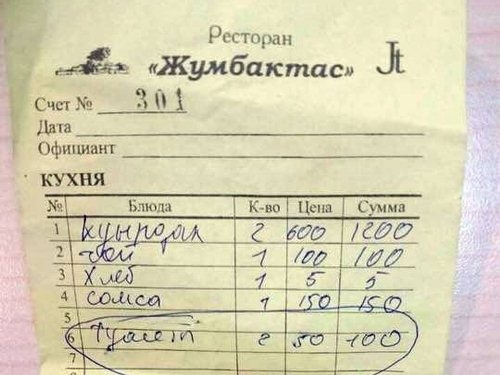 Ресторан
«Жумбактас» Jt
Счет № 301
Дата
Официант
КУХНЯ
№ Блюда К-во Цена Сумма
1 Куырдак 2 600 1200
2 чай 1 100 100
3 Хлеб 1 5 5
4 сомса 1 150 150
5
6 Туалет 2 50 100
7